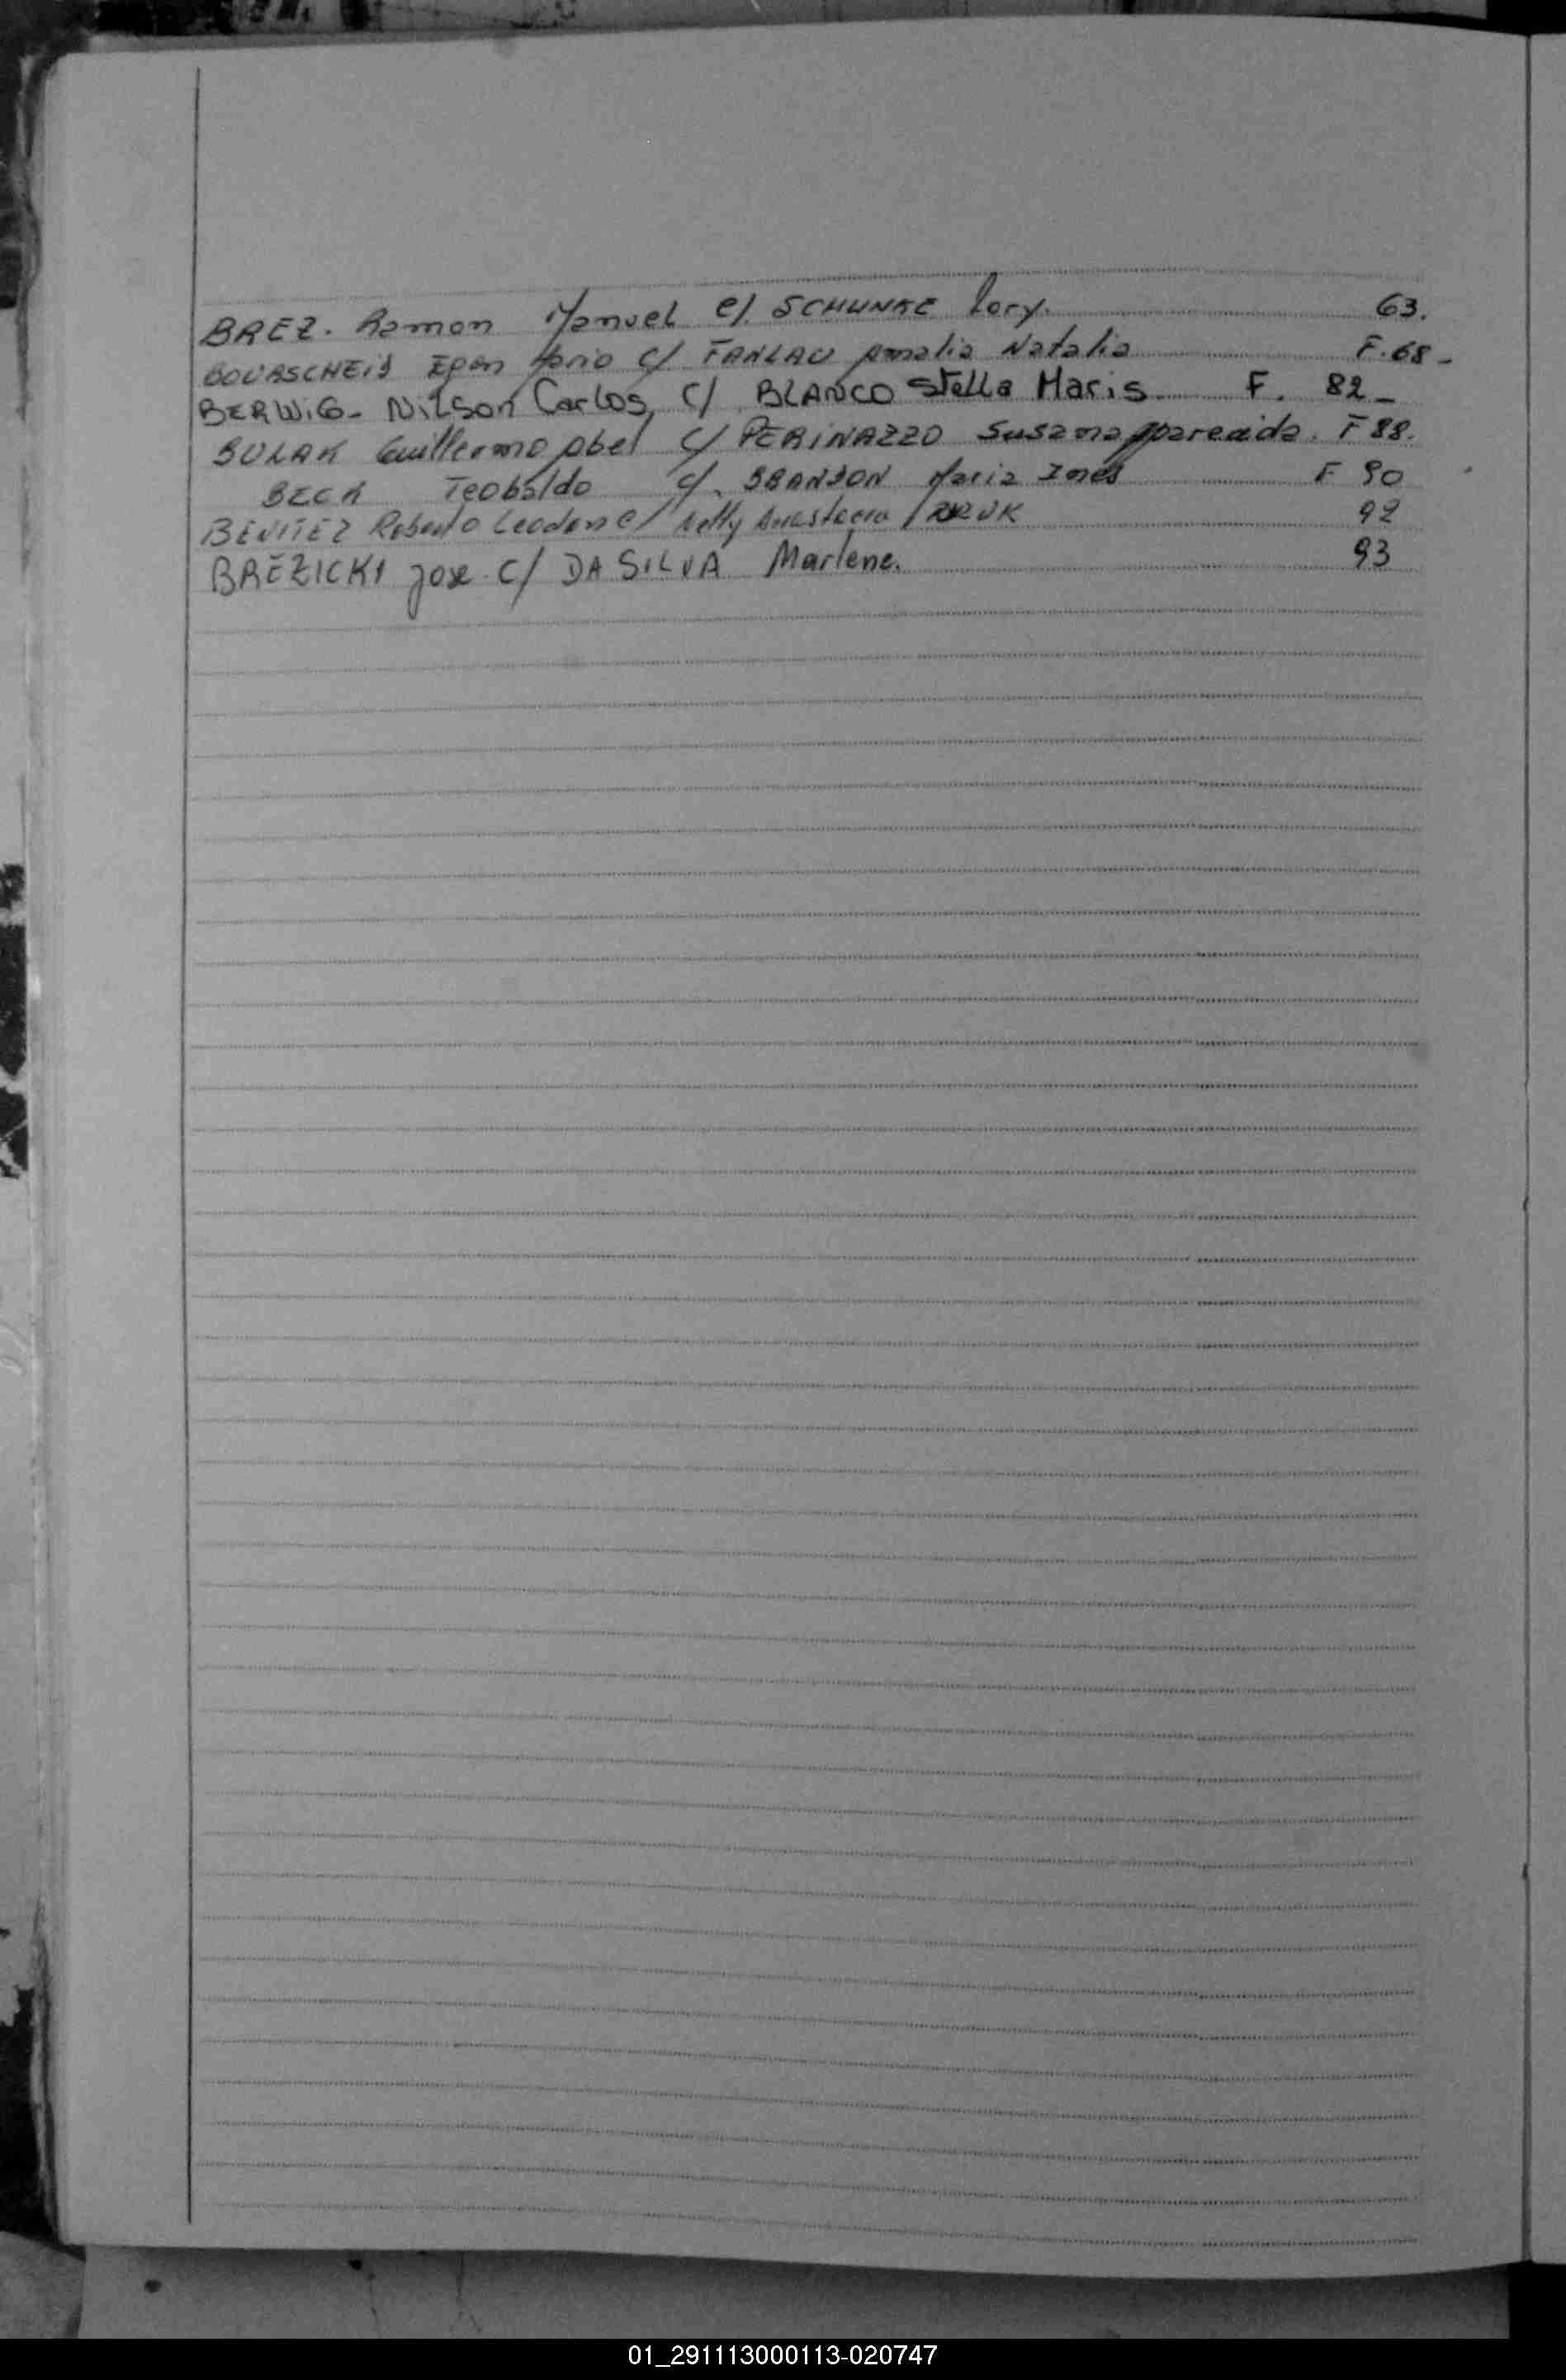 BREZ. Ramon Manuel c/. SCHUNKE Lory. 63.
BOURSCHEID Egon Mario c/ FANLAU Amalia Natalia F. 68-
BERWIG- Nilson Carlos, c/ BLANCO Stella Maris F. 82-
BULAK Guillermo Abel c/ PERINAZZO Susana Apareaida. F 88.
BECK Teobaldo c/. Maria Ines F 90
BENITEZ Roberto c/ Nelly 92
BREZICKI Jose c/ DA SILVA Marlene. 93
01_291113000113-020747